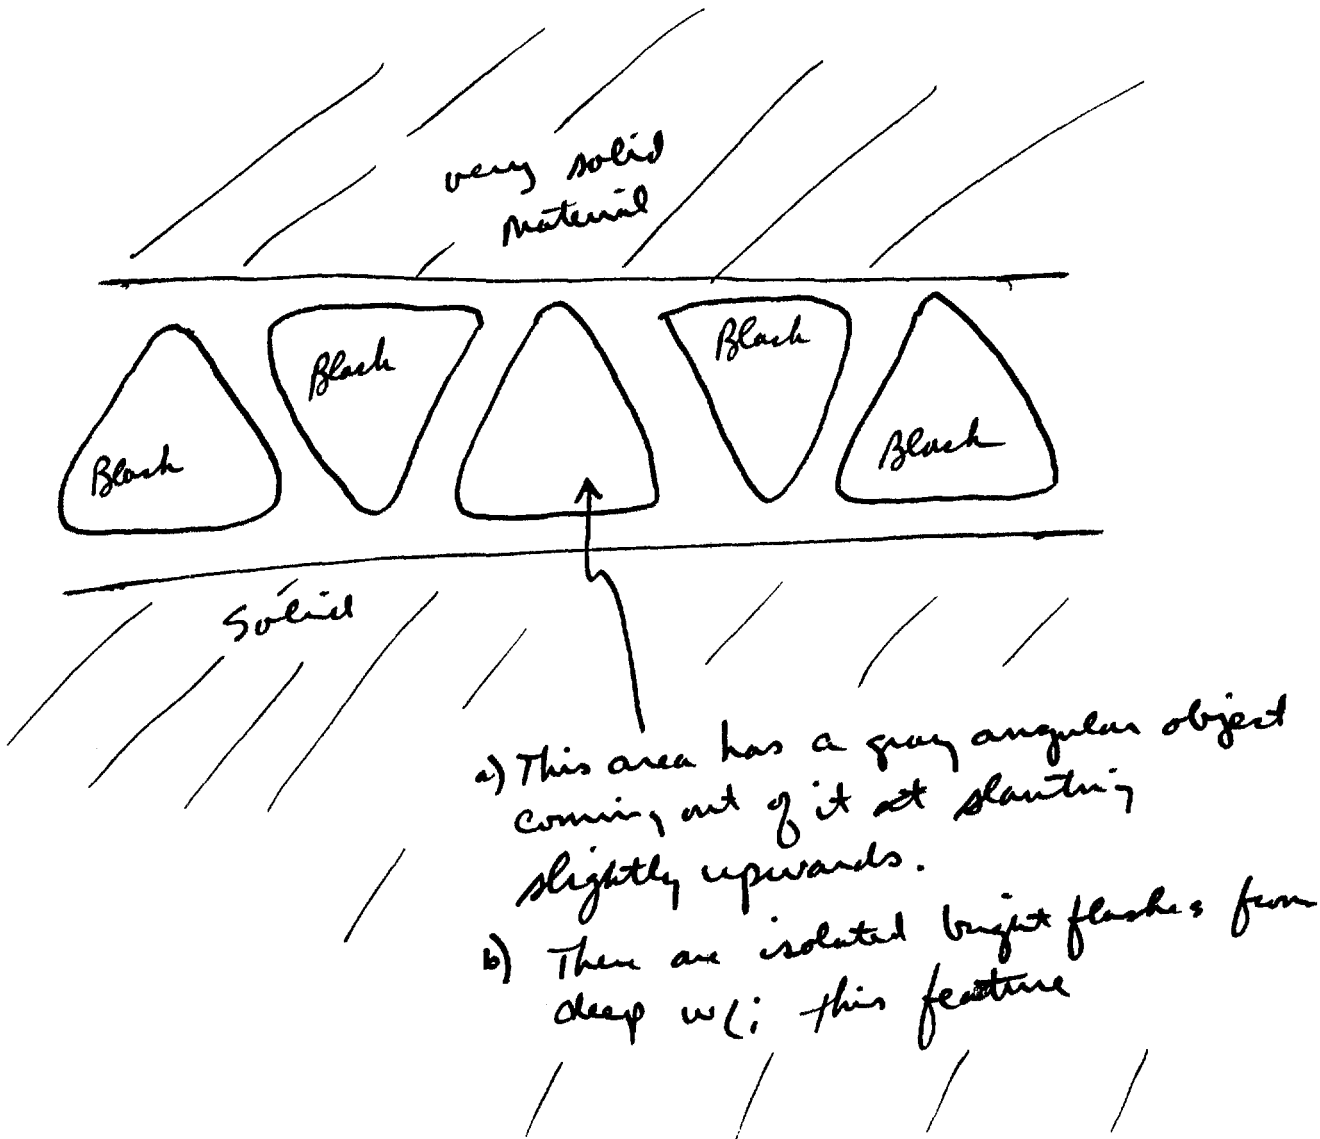 very solid
material
Black
Black
Black
Black
Black
Solid
a) This area has a gray angular object
coming out of it at slanting
slightly upwards.
b) There are isolated bright flashes from
deep w/i this feature